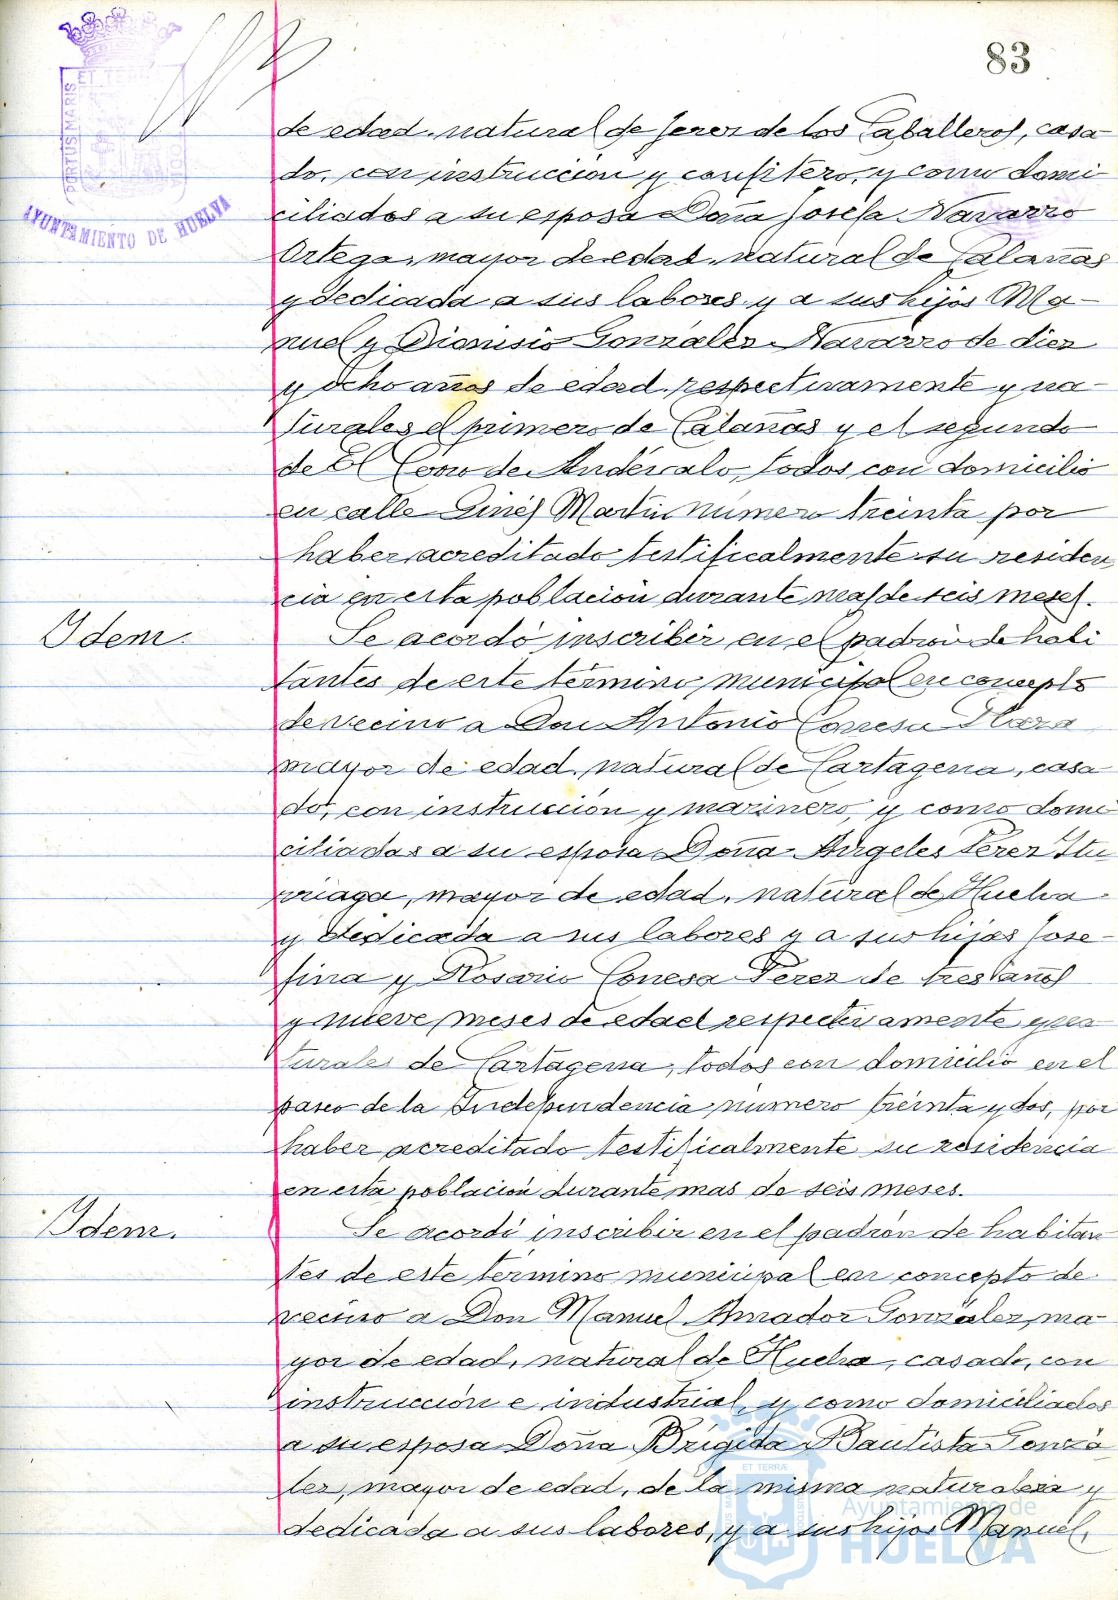 83
ET TERRÆ
PORTUS MARIS
AYUNTAMIENTO DE HUELVA
de edad, natural de Jerez de los Caballeros, casa-
do, con instrucción y confitero, y como domi-
ciliados a su esposa Doña Josefa Navarro
Ortega, mayor de edad, natural de Calañas
y dedicada a sus labores y a sus hijos Ma-
nuel y Dionisio González Navarro de diez
y ocho años de edad respectivamente y na-
turales el primero de Calañas y el segundo
de El Cerro de Andévalo, todos con domicilio
en calle Ginés Martín número treinta por
haber acreditado testificalmente su residen
cia en esta población durante mas de seis meses.
Idem.
Se acordó inscribir en el padrón de habi
tantes de este término municipal en concepto
de vecino a Don Antonio Conesa
mayor de edad, natural de Cartagena, casa
do, con instrucción y marinero, y como domi
ciliadas a su esposa Doña Angeles Perez Itu
rriaga, mayor de edad, natural de Huelva
y dedicada a sus labores y a sus hijas Jose-
fina y Rosario Conesa Perez de tres años
y nueve meses de edad respectivamente y na
turales de Cartagena, todos con domicilio en el
paseo de la Independencia número treinta y dos, por
haber acreditado testificalmente su residencia
en esta población durante mas de seis meses.
Idem.
Se acordó inscribir en el padrón de habitan
tes de este término municipal en concepto de
vecino a Don Manuel Amador González, ma-
yor de edad, natural de Huelva, casado, con
instrucción e industrial, y como domiciliados
a su esposa Doña Brígida Bautista Gonzá-
lez, mayor de edad, de la misma naturaleza y
dedicada a sus labores, y a sus hijos Manuel,
Ayuntamiento de
HUELVA